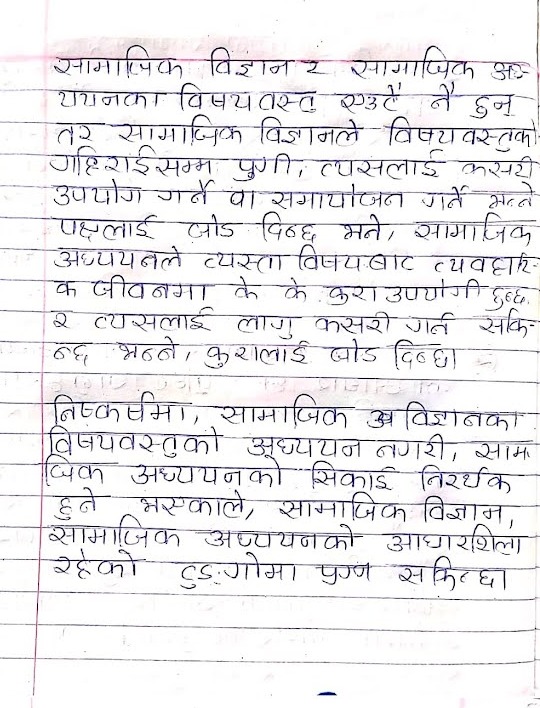 सामाजिक विज्ञान र सामाजिक अध्-
ययनका विषयवस्तु एउटै नै हुन्
तर सामाजिक विज्ञानले विषयवस्तुको
गहिराईसम्म पुगी, त्यसलाई कसरी
उपयोग गर्ने वा समायोजन गर्ने भन्ने
पक्षलाई जोड दिन्छ भने, सामाजिक
अध्ययनले त्यस्ता विषयबाट व्यवहारि-
क जीवनमा के के कुरा उपयोगी हुन्छ
र त्यसलाई लागु कसरी गर्न सकि-
न्छ भन्ने, कुरालाई जोड दिन्छ।
निष्कर्षमा, सामाजिक विज्ञानका
विषयवस्तुको अध्ययन नगरी, सामा
जिक अध्ययनको सिकाई निरर्थक
हुने भएकाले, सामाजिक विज्ञान,
सामाजिक अध्ययनको आधारशिला
रहेको टुङ्गोमा पुग्न सकिन्छ।